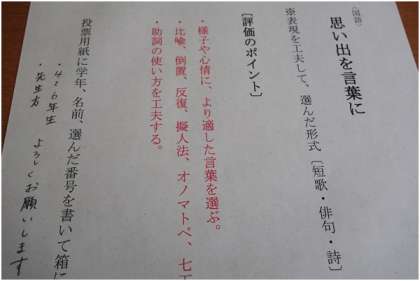 (国語)
思い出を言葉に
※表現を工夫して、選んだ形式〔短歌・俳句・詩〕
〔評価のポイント〕
・様子や心情に、より適した言葉を選ぶ。
・比喩、倒置、反復、擬人法、オノマトペ、七五
・助詞の使い方を工夫する。
投票用紙に学年、名前、選んだ番号を書いて箱に
・4〜6年生
・先生方 よろしくお願いします